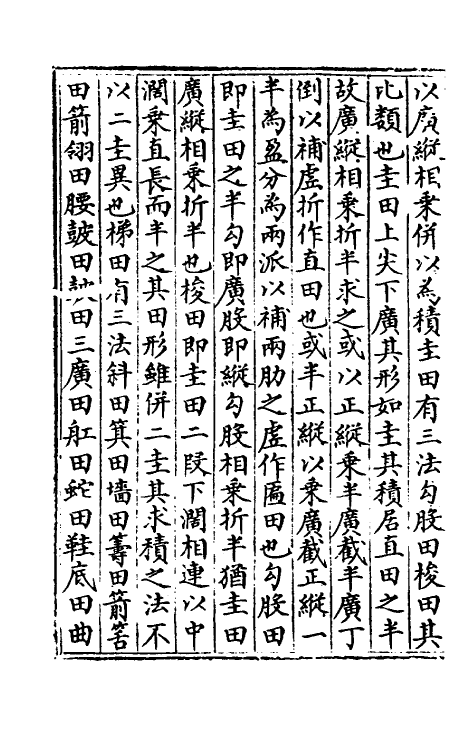 以廣縱相乘併以為積圭田有三法勾股田梭田其
此類也圭田上尖下廣其形如圭其積居直田之半
故廣縱相乘折半求之或以正縱乘半廣截半廣丁
倒以補虛折作直田也或半正縱以乘廣截正縱一
半為盈分為兩派以補兩肋之虛作匾田也勾股田
即圭田之半勾即廣股即縱勾股相乘折半猶圭田
廣縱相乘折半也梭田即圭田二段下濶相連以中
濶乘直長而半之其田形雖併二圭其求積之法不
以二圭異也梯田有三法斜田箕田墻田籌田箭筈
田箭翎田腰鼓田皷田三廣田舡田蛇田鞋底田曲